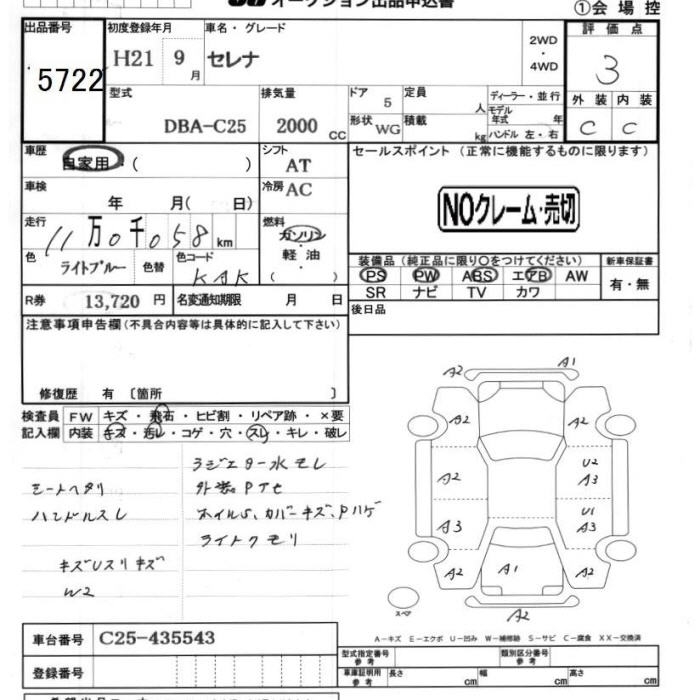 オークション出品申込書
①会場控
出品番号
5722
初度登録年月
H21 9月
車名・グレード
セレナ
2WD
・
4WD
評価点
3
型式
DBA-C25
排気量
2000 CC
ドア
5
定員
人
ディーラー・並行
モデル年式 年
形状
WG
積載
kg
ハンドル 左・右
外装 内装
C C
車歴
自家用・( )
シフト
AT
セールスポイント (正常に機能するものに限ります)
車検
年 月( 日)
冷房
AC
NOクレーム・売切
走行
11万0千058km
燃料
ガソリン
・
軽油
( )
色
ライトブルー
色替
色コード
KAK
装備品 (純正品に限り○をつけてください)
新車保証書
PS PW ABS エアB AW
SR ナビ TV カワ
有・無
R券
13,720 円
名変通知期限 月 日
後日品
注意事項申告欄(不具合内容等は具体的に記入して下さい)
修復歴 有 〔箇所 〕
検査員
記入欄
FW キズ・飛石・ヒビ割・リペア跡・×要
内装 キズ・汚レ・コゲ・穴・スレ・キレ・破レ
ラジエター水モレ
シートヘタリ
外装PTセ
ハンドルスレ
ホイルS、カバーキズ、Pハゲ
ライトクモリ
キズUスリキズ
W2
A2 A1
A2 A2
A2 U2
A3
A3 U1
A3
A2 A1 A2
A2
スペア
A-キズ E-エクボ U-凹み W-補修跡 S-サビ C-腐食 XX-交換済
車台番号
C25-435543
登録番号
型式指定番号
参考
類別区分番号
参考
車庫証明用
参考
長さ cm
幅 cm
高さ cm